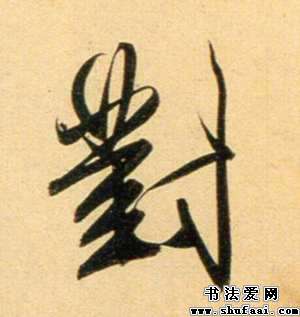 對
书法爱网
www.shufaai.com